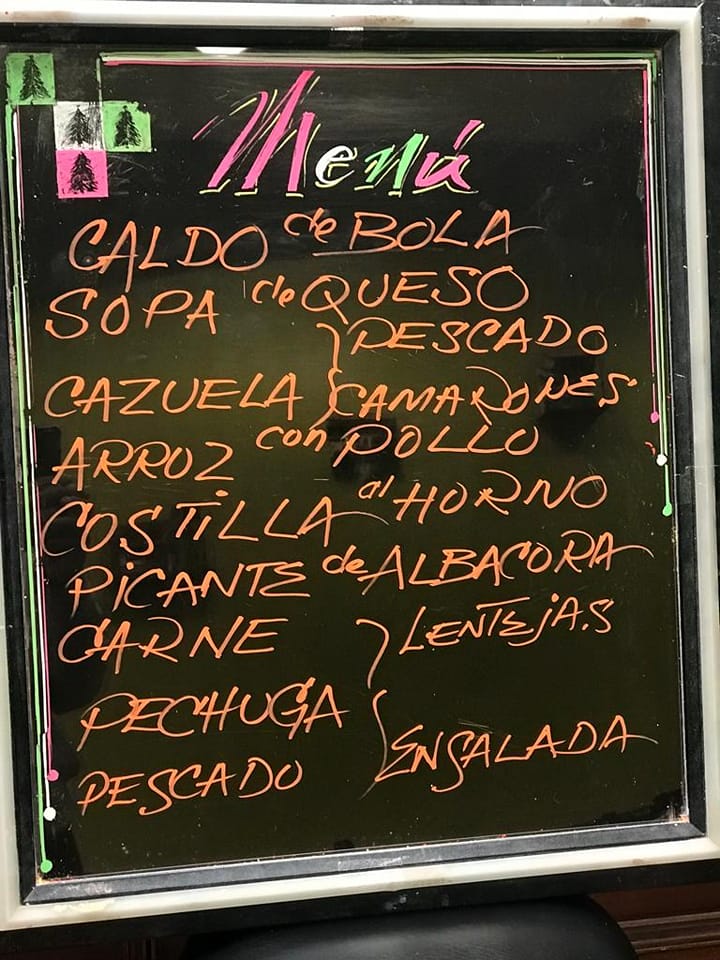 Menú
CALDO de BOLA
SOPA de QUESO
PESCADO
CAZUELA CAMARONES
ARROZ con POLLO
COSTILLA al HORNO
PICANTE de ALBACORA
CARNE LENTEJAS
PECHUGA
ENSALADA
PESCADO